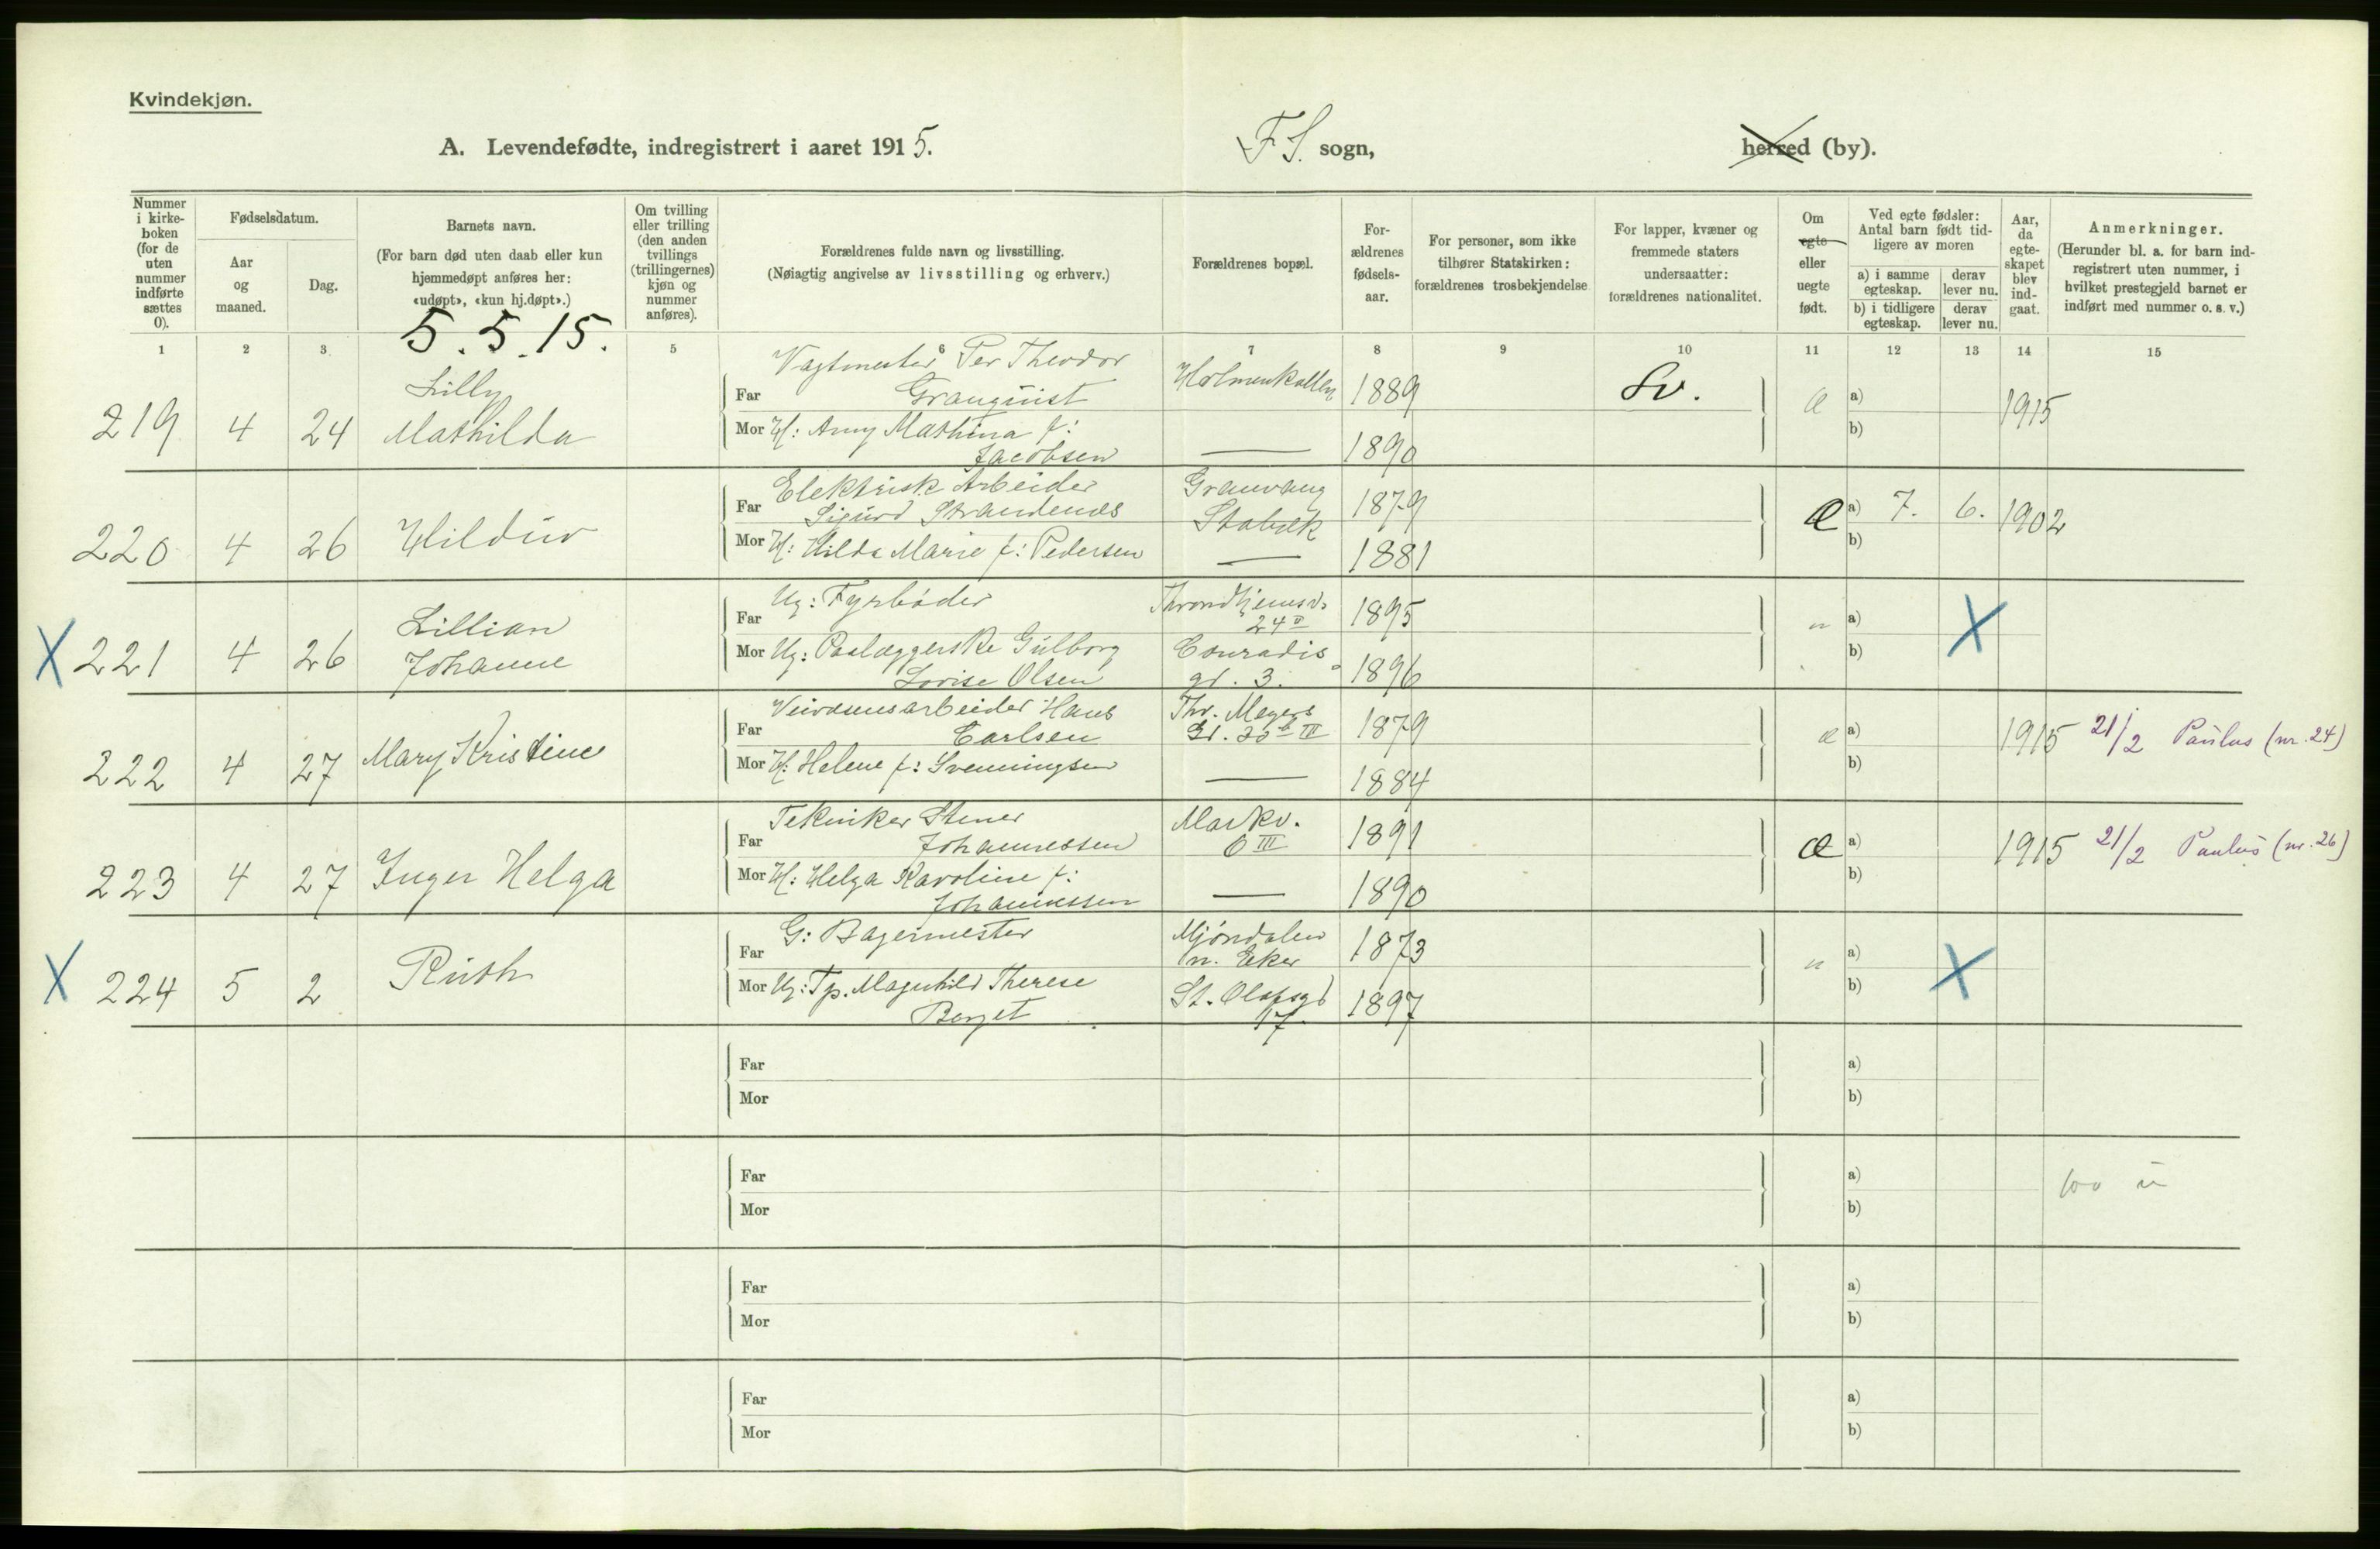 Kvindekjøn.
A. Levendefødte, indregistrert i aaret 1915. F. S. sogn, herred (by).
Nummer i kirkeboken (for de uten nummer indførte sættes 0).
Fødselsdatum.
Aar og maaned.
Dag.
Barnets navn.
(For barn død uten daab eller kun hjemmedøpt anføres her: «udøpt», «kun hj.døpt».)
Om tvilling eller trilling (den anden tvillings (trillingernes) kjøn og nummer anføres).
Forældrenes fulde navn og livsstilling.
(Nøiagtig angivelse av livsstilling og erhverv.)
Forældrenes bopæl.
Forældrenes fødselsaar.
For personer, som ikke tilhører Statskirken: forældrenes trosbekjendelse
For lapper, kvæner og fremmede staters undersaatter: forældrenes nationalitet.
Om egte eller uegte født.
Ved egte fødsler: Antal barn født tidligere av moren
a) i samme egteskap.
derav lever nu.
b) i tidligere egteskap.
derav lever nu.
Aar, da egteskapet blev indgaat.
Anmerkninger.
(Herunder bl. a. for barn indregistrert uten nummer, i hvilket prestegjeld barnet er indført med nummer o. s. v.)
5.5.15.
1 2 3 5 6 7 8 9 10 11 12 13 14 15
219 4 24 Lilly Mathilda
Far Vagtmester Per Theodor Granquist Holmenkollen 1889 Sv. æ a) 1915
Mor H: Anny Mathina f: Jacobsen — 1890 b)
220 4 26 Hildur
Far Elektrisk Arbeider Sigurd Strandenæs Granvang Stabæk 1879 Æ a) 7. 6. 1902
Mor H: Hilda Marie f: Pedersen — 1881 b)
X 221 4 26 Lillian Johanne
Far Ug: Fyrbøder Throndhjemsv. 24 II 1895 u a) X
Mor Ug: Paalæggerske Gulborg Lovise Olsen Conradis gd. 3. 1896 b)
222 4 27 Mary Kristine
Far Veivæsensarbeider Hans Carlsen Thv. Meyers Gt. III 1879 æ a) 1915 21/2 Paulus (nr. 24)
Mor H: Helene f: Svenningsen — 1884 b)
223 4 27 Inger Helga
Far Tekniker Stener Johannessen Markv. 6 III 1891 Æ a) 1915 21/2 Paulus (nr. 26)
Mor H: Helga Karoline f: Johannessen — 1890 b)
X 224 5 2 Ruth
Far G: Bagermester Mjøndalen n. Eker 1873 u a) X
Mor Ug: Tp. Magnhild Therese Berget St. Olafsgd 17. 1897 b)
Far a)
Mor b)
Far a)
Mor b)
Far a)
Mor b)
Far a)
Mor b)